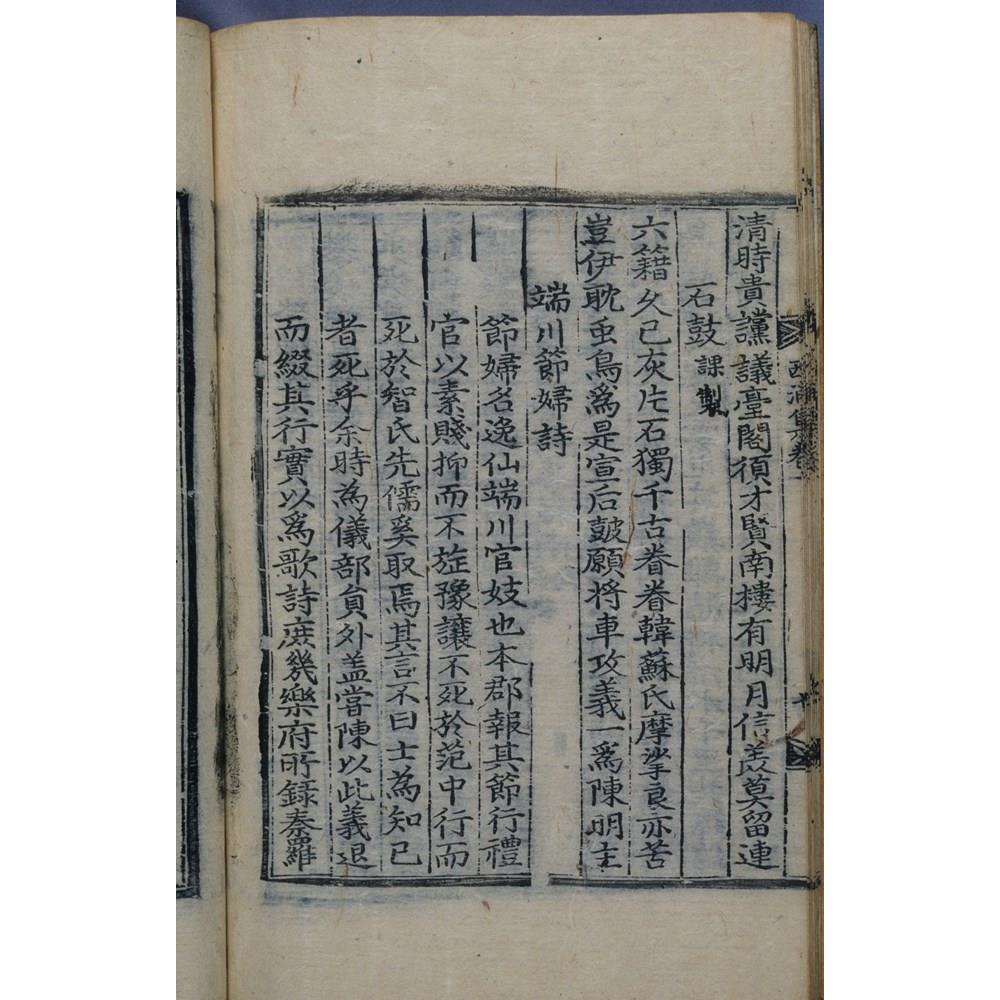 清時貴讜議臺閣須才賢南樓有明月信美莫留連
石鼓 課製
六籍久已灰片石獨千古眷眷韓蘇氏摩挲良亦苦
豈伊耽虫鳥爲是宣后皷願将車攻義一爲陳明主
端川節婦詩
節婦名逸仙端川官妓也本郡報其節行禮
官以素賤抑而不㫌豫讓不死於范中行而
死於智氏先儒奚取焉其言不曰士為知己
者死乎余時為儀部貟外盖甞陳以此義退
而綴其行實以爲歌詩庶幾樂府所録秦羅